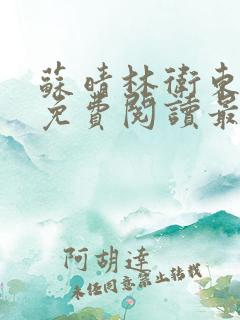 蘇晴林衛東
免費閱讀最
阿胡達
未經同意禁止轉載